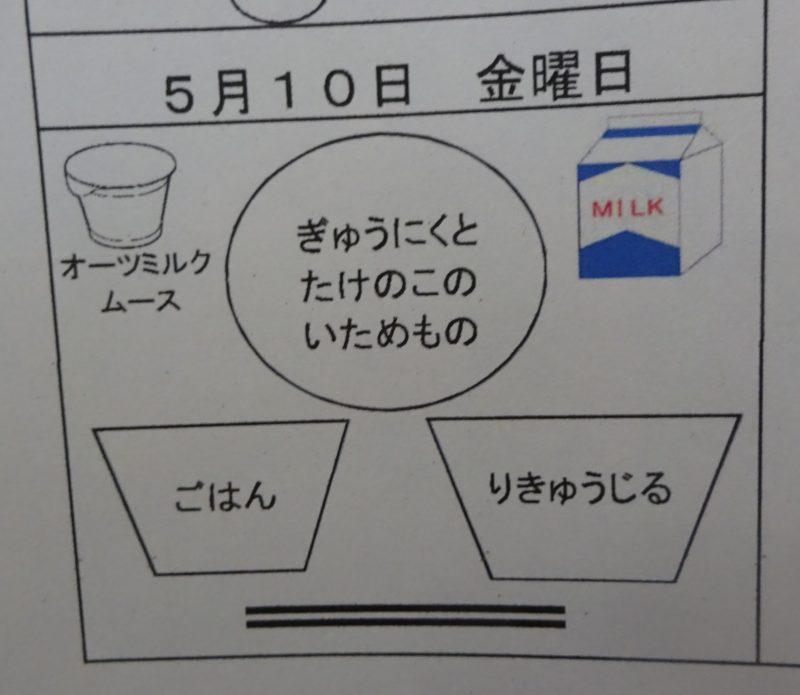 5月10日 金曜日
オーツミルク
ムース
ぎゅうにくと
たけのこの
いためもの
MILK
ごはん
りきゅうじる